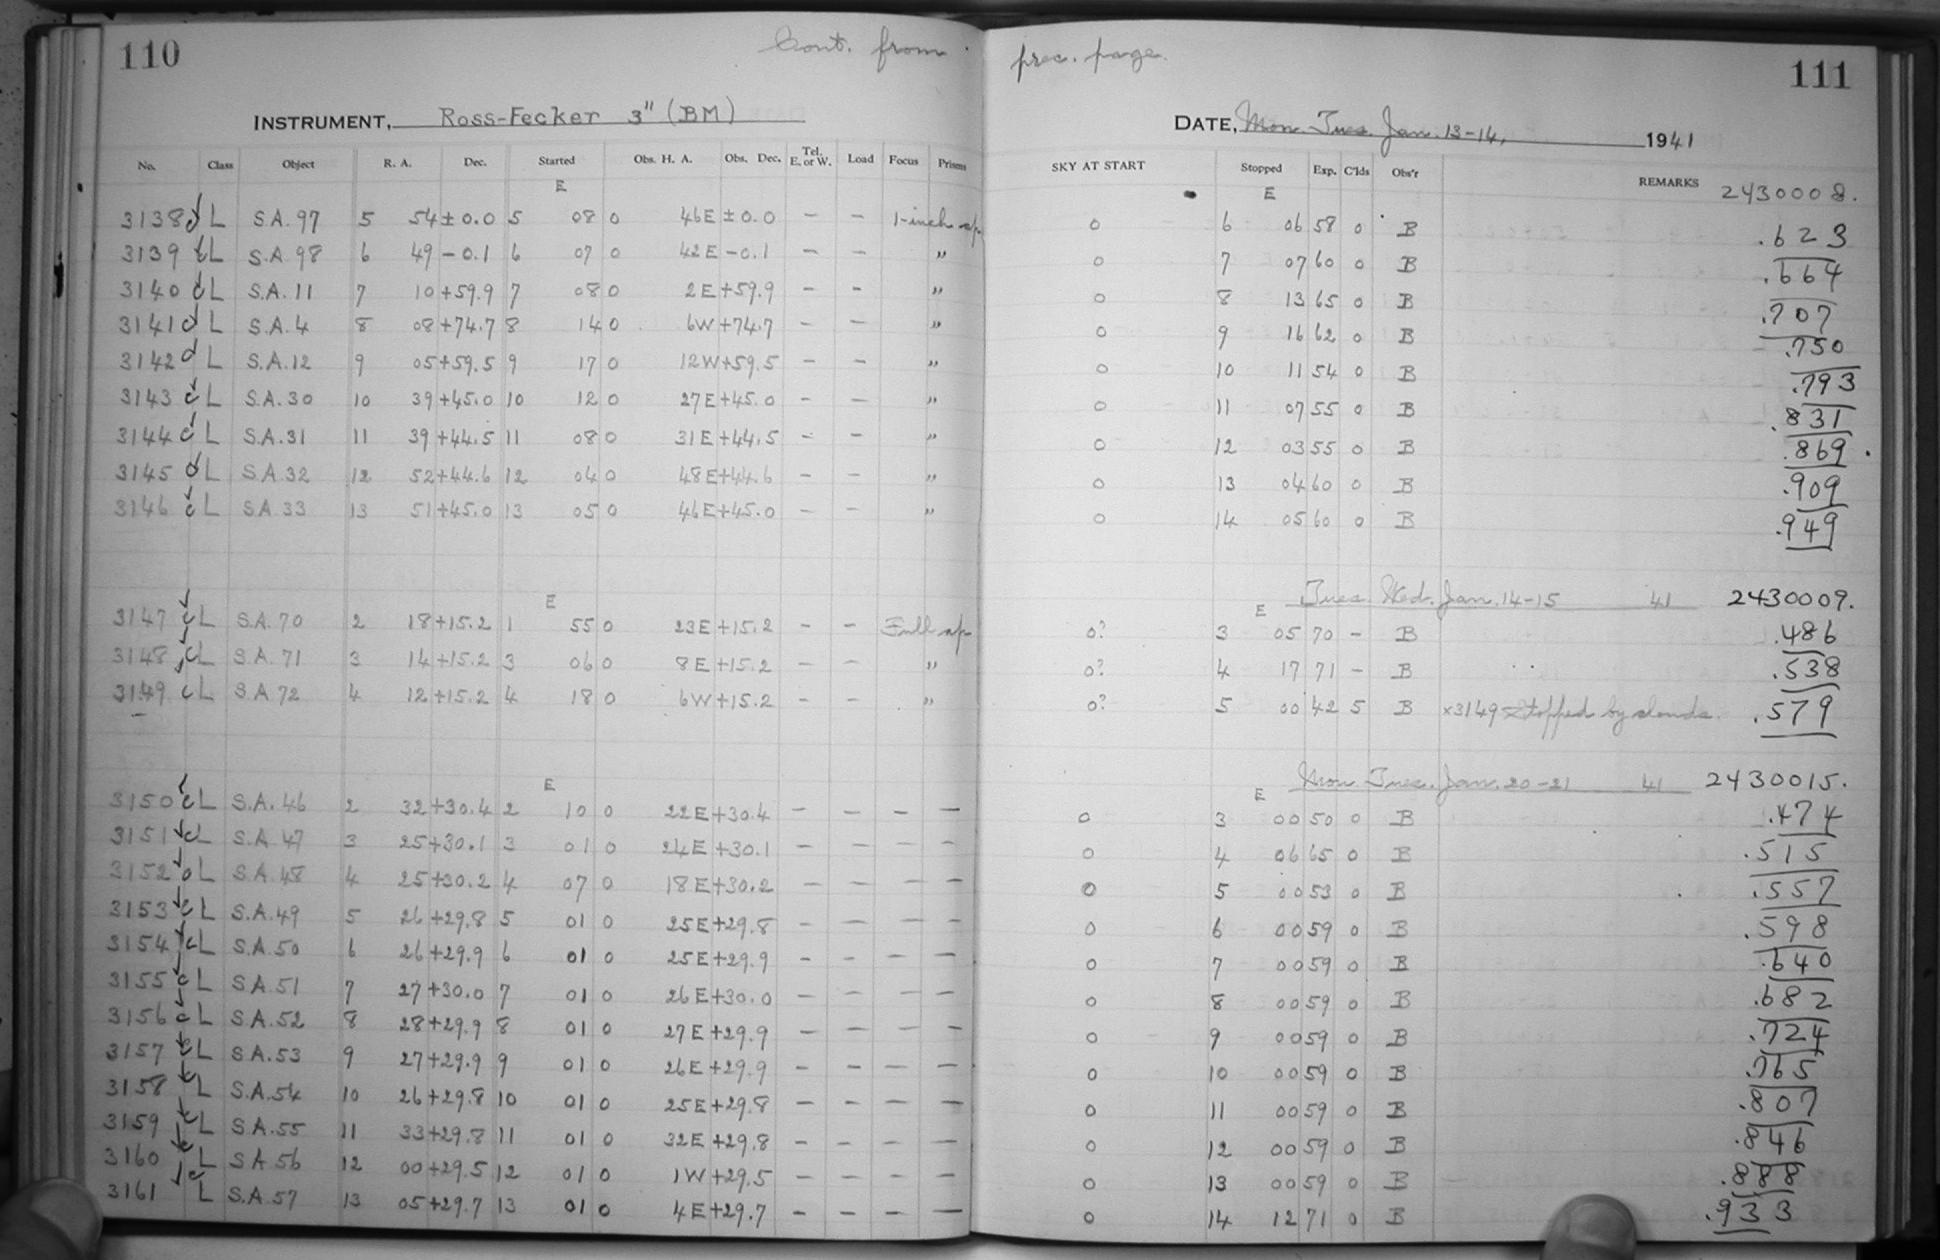 110
Cont. from prec. page.
111
INSTRUMENT, Ross-Fecker 3" (BM)
DATE, Mon. Tues. Jan. 13-14, 1941
No. Class Object R. A. Dec. Started Obs. H. A. Obs. Dec. Tel. E. or W. Load Focus Prisms SKY AT START Stopped Exp. C'lds Obs'r REMARKS
E E 2430008.
3138 L S.A. 97 5 54 ± 0.0 5 08 0 46E ± 0.0 — — 1-inch ap. 0 6 06 58 0 B .623
3139 L S.A. 98 6 49 - 0.1 6 07 0 42E - 0.1 — — " 0 7 07 60 0 B .664
3140 L S.A. 11 7 10 +59.9 7 08 0 2E +59.9 — — " 0 8 13 65 0 B .707
3141 L S.A. 4 8 08 +74.7 8 14 0 6W +74.7 — — " 0 9 16 62 0 B .750
3142 L S.A. 12 9 05 +59.5 9 17 0 12W +59.5 — — " 0 10 11 54 0 B .793
3143 L S.A. 30 10 39 +45.0 10 12 0 27E +45.0 — — " 0 11 07 55 0 B .831
3144 L S.A. 31 11 39 +44.5 11 08 0 31E +44.5 — — " 0 12 03 55 0 B .869
3145 L S.A. 32 12 52 +44.6 12 04 0 48E +44.6 — — " 0 13 04 60 0 B .909
3146 L S.A. 33 13 51 +45.0 13 05 0 46E +45.0 — — " 0 14 05 60 0 B .949
E E Tues. Wed. Jan. 14-15 41 2430009.
3147 L S.A. 70 2 18 +15.2 1 55 0 23E +15.2 — — Full ap. 0? 3 05 70 — B .486
3148 L S.A. 71 3 14 +15.2 3 06 0 8E +15.2 — — " 0? 4 17 71 — B .538
3149 L S.A. 72 4 12 +15.2 4 18 0 6W +15.2 — — " 0? 5 00 42 5 B x3149 stopped by clouds. .579
E E Mon. Tues. Jan. 20-21 41 2430015.
3150 L S.A. 46 2 32 +30.4 2 10 0 22E +30.4 — — — — 0 3 00 50 0 B .474
3151 L S.A. 47 3 25 +30.1 3 01 0 24E +30.1 — — — — 0 4 06 65 0 B .515
3152 L S.A. 48 4 25 +30.2 4 07 0 18E +30.2 — — — — 0 5 00 53 0 B .557
3153 L S.A. 49 5 26 +29.8 5 01 0 25E +29.8 — — — — 0 6 00 59 0 B .598
3154 L S.A. 50 6 26 +29.9 6 01 0 25E +29.9 — — — — 0 7 00 59 0 B .640
3155 L S.A. 51 7 27 +30.0 7 01 0 26E +30.0 — — — — 0 8 00 59 0 B .682
3156 L S.A. 52 8 28 +29.9 8 01 0 27E +29.9 — — — — 0 9 00 59 0 B .724
3157 L S.A. 53 9 27 +29.9 9 01 0 26E +29.9 — — — — 0 10 00 59 0 B .765
3158 L S.A. 54 10 26 +29.8 10 01 0 25E +29.8 — — — — 0 11 00 59 0 B .807
3159 L S.A. 55 11 33 +29.8 11 01 0 32E +29.8 — — — — 0 12 00 59 0 B .846
3160 L S.A 56 12 00 +29.5 12 01 0 1W +29.5 — — — — 0 13 00 59 0 B .888
3161 L S.A. 57 13 05 +29.7 13 01 0 4E +29.7 — — — — 0 14 12 71 0 B .933